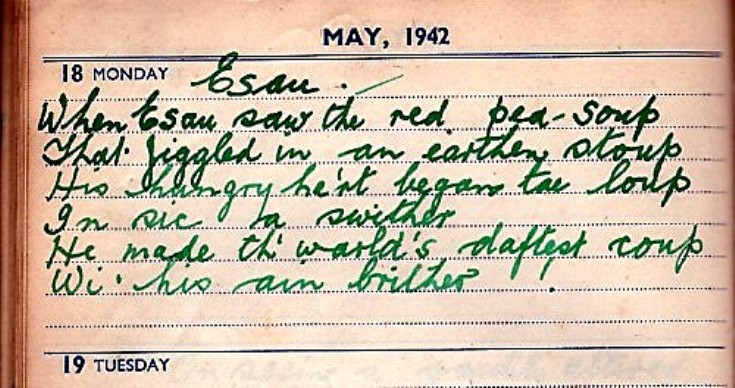 MAY, 1942
18 MONDAY Esau.
When Esau saw the red pea-soup
That jiggled in an earthen stoup
His hungry he'rt began tae loup
In sic a swither
He made th' warld's daftest coup
Wi' his ain brither!
19 TUESDAY